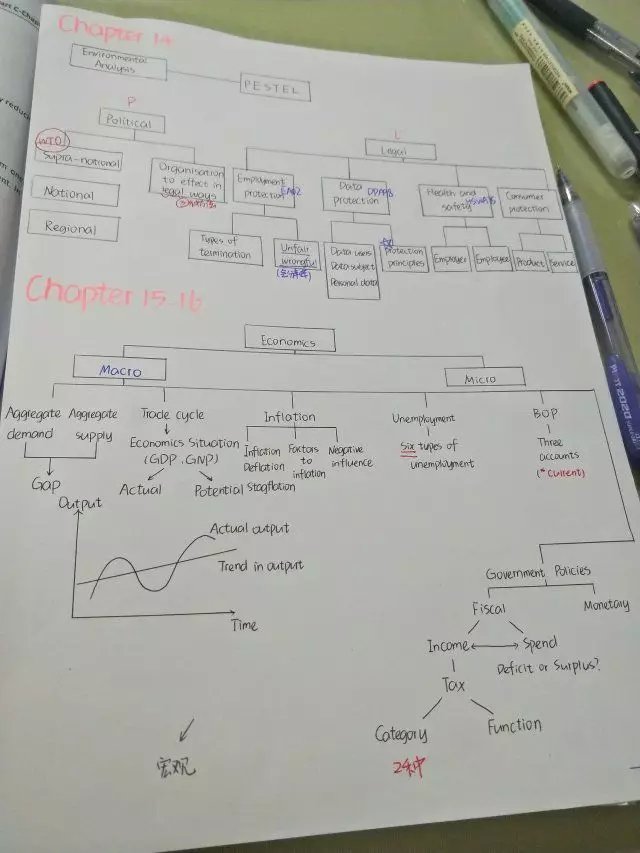 Chapter 14
Environmental
Analysis
PESTEL
P
Political
L
Legal
WTO
Supra-national
National
Regional
Organisation
to effect in
legal ways
Employment
protection
Data
protection
Health and
safety
Consumer
protection
Types of
termination
Unfair
wrongful
Data users
Data subject
Personal data
protection
principles
Employer
Employee
Product
Service
Chapter 15-16
Economics
Macro
Micro
Aggregate
demand
Aggregate
supply
Gap
Trade cycle
Economics Situation
(GDP, GNP)
Actual
Potential
Inflation
Inflation
Deflation
Stagflation
Factors
to
inflation
Negative
influence
Unemployment
Six types of
unemployment
BOP
Three
accounts
(*Current)
Output
Actual output
Trend in output
Time
Government Policies
Fiscal
Monetary
Income
Spend
Deficit or Surplus?
Tax
Category
Function
2种
宏观